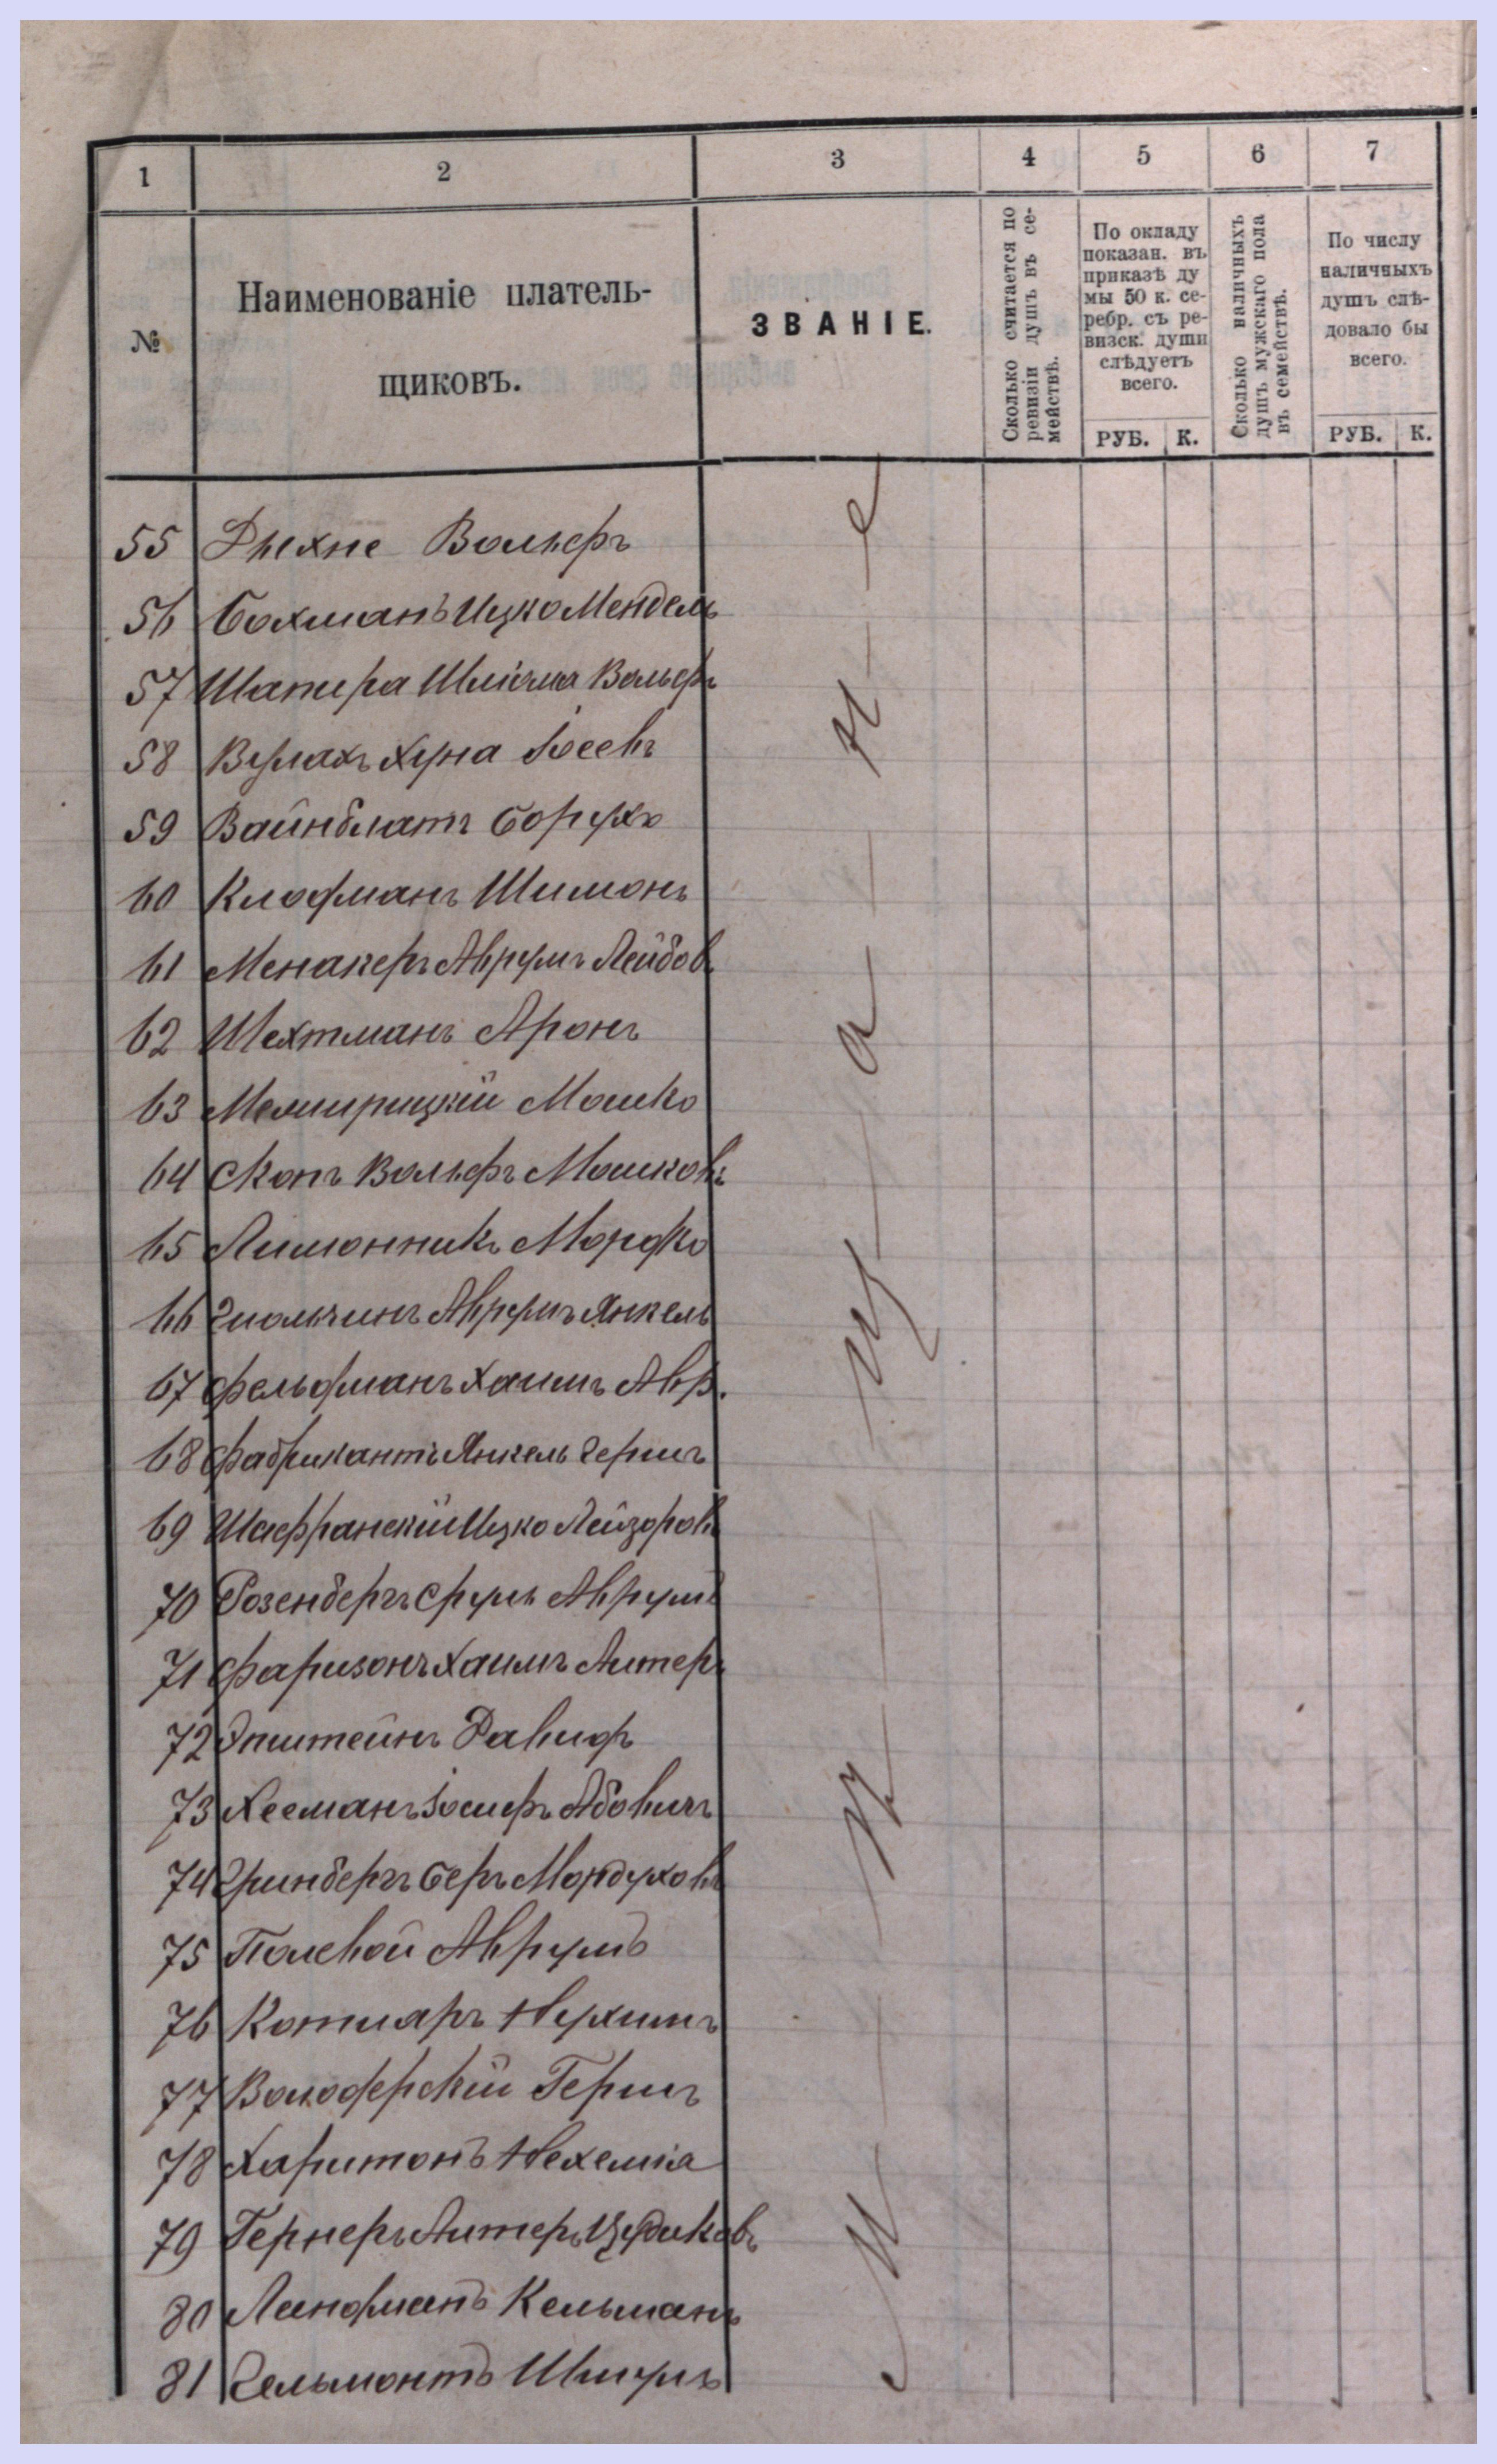 1 2 3 4 5 6 7
№
Наименованіе платель-
щиковъ.
ЗВАНІЕ.
Сколько считается по
ревизіи душъ въ се-
мействѣ.
По окладу
показан. въ
приказѣ ду
мы 50 к. се-
ребр. съ ре-
визск. души
слѣдуетъ
всего.
РУБ. К.
Сколько наличныхъ
душъ мужскаго пола
въ семействѣ.
По числу
наличныхъ
душъ слѣ-
довало бы
всего.
РУБ. К.
55 Вольфъ
56 Бохманъ Ицко Мендель
57 Шапира Шліома Вольфъ
58 Вулахъ Хуна Іосевъ
59 Вайнблатъ Борухъ
60 Клодманъ Шимонъ
61 Менакеръ Аврумъ Лейбов
62 Шехтманъ Аронъ
63 Межирицкій Мошко
64 Скопъ Вольфъ Мошковъ
65 Лимонникъ Мордко
66 Аврумъ Янкель
67 Фельдманъ Хаимъ Авр.
68 Фабрикантъ Янкель Гершъ
69 Шафранскій Ицко Лейзоров
70 Розенбергъ Сруль Аврумъ
71 Фаризонъ Хаимъ Алтеръ
72 Эпштейнъ Давидъ
73 Хесманъ Іосифъ Абовичъ
74 Гринбергъ Беръ Мордуховъ
75 Полевой Аврумъ
76 Котляръ Нухимъ
77 Володерскій Гершъ
78 Харитонъ Нехемія
79 Гернеръ Алтеръ Цудиковъ
80 Ландманъ Кельманъ
81 Гельмонтъ Шмуль
М ѣ щ а н е